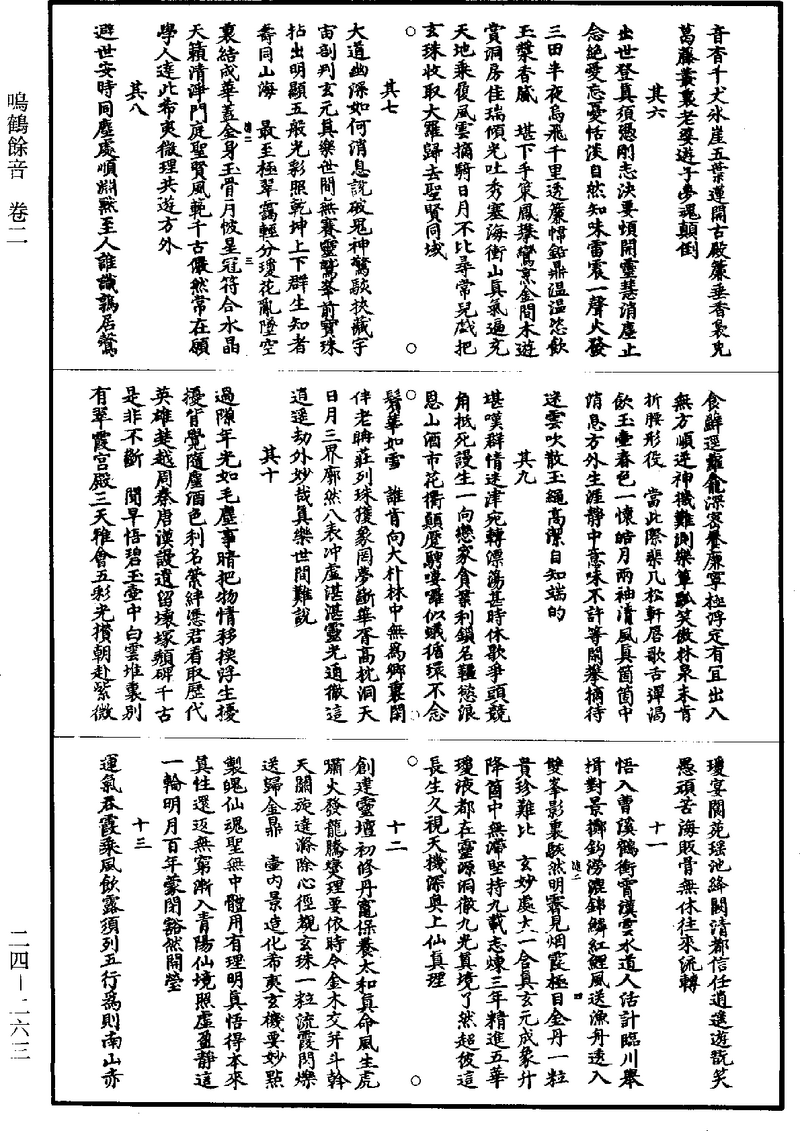 鳴鶴餘音 卷二
音杳千犬氷崖五葉遵開古殿簾垂香裊免
葛藤叢裏老婆遊子夢魂顛倒
其六
出世登真須憑剛志決要頓開靈慧消塵止
念絶愛忘憂恬淡自然知味雷震一聲火發
三田半夜烏飛千里透簾幃鉛鼎温温恣飲
玉漿香膩 堪下手策鳳驂鸞烹金間木遊
賞洞房佳瑞傾光吐秀塞海衝山真氣遍充
天地乘復風雲擒騎日月不比尋常兒戲把
玄珠收取大羅歸去聖賢同域
其七
大道幽深如何消息說破鬼神驚駭挾藏宇
宙剖判玄元真樂世間無賽靈鷲峯前寶珠
拈出明顯五般光彩照乾坤上下群生知者
壽同山海 最至極翠靄輕分瓊花亂墜空
裏結成華蓋金身玉骨月帔星冠符合水晶
天籟清淨門庭聖賢風範千古儼然常在願
學人達此希夷微理共遊方外
其八
避世安時同塵處順淵默至人誰識鶉居鷇
食鮮選羅龕深密養廉寧極浮定有冝出入
無方順逆神機難測樂簞瓢笑傲林泉未肯
折腰形役 當此際棐几松軒唇歌舌彈渴
飲玉壷春色一懷皓月兩袖清風真箇箇中
消息方外生涯靜中意味不許等閑拏摘待
迷雲吹散玉繩高潔自知端的
其九
堪嘆群情迷津宛轉漂蕩甚時休歇爭頭競
角抵死謾生一向戀家貪業利鎖名韁慾浪
恩山酒市花衢顛蹷騁嘍囉似蟻循環不念
鬢華如雪 誰肯向大朴林中無爲鄉裏閑
伴老聃莊列珠獲象罔夢斷華胥高枕洞天
日月三界廓然八表沖虛湛湛靈光通徹這
逍遥劫外妙哉真樂世間難說
其十
過隙年光如毛塵事暗把物情移挨浮生擾
擾背覺隨塵酒色利名縈絆憑君看取歷代
英雄楚越周秦唐漢設遺留壞塚頽碑千古
是非不斷 聞早悟碧玉壷中白雲堆裏別
有翠霞宮殿三天雅會五彩光攢朝赴紫微
瓊宴閬苑瑶池絳闕清都信任逍遥遊翫笑
愚頑苦海貶骨無休往來流轉
十一
悟入曹溪鶴衝霄漢雲水道人活計臨川舉
揖對景擲鈎澇漉錦鱗紅鯉風送漁舟透入
雙峯影裏駭然明霽見烟霞極目金丹一粒
貴珍難比 玄妙處太一合真玄元成象升
降箇中無滯堅持九載志煉三年精進五華
瓊液都在靈源洞徹九光真境了然超彼這
長生久視天機深奥上仙真理
十二
創建靈壇初修丹竈保養太和真命風生虎
嘯火發龍騰燮理要依時令金木交并斗斡
天關旋達滌除心徑覩玄珠一粒流霞閃爍
送歸金鼎 壷内景造化希夷玄機要妙點
製魄仙魂聖無中體用有理明真悟得本來
真性還返無窮漸入青陽仙境照虛盈靜這
一輪明月百年蒙閉豁然開瑩
十三
運氣吞霞乘風飲露須列五行爲則南山赤
二四—二六三